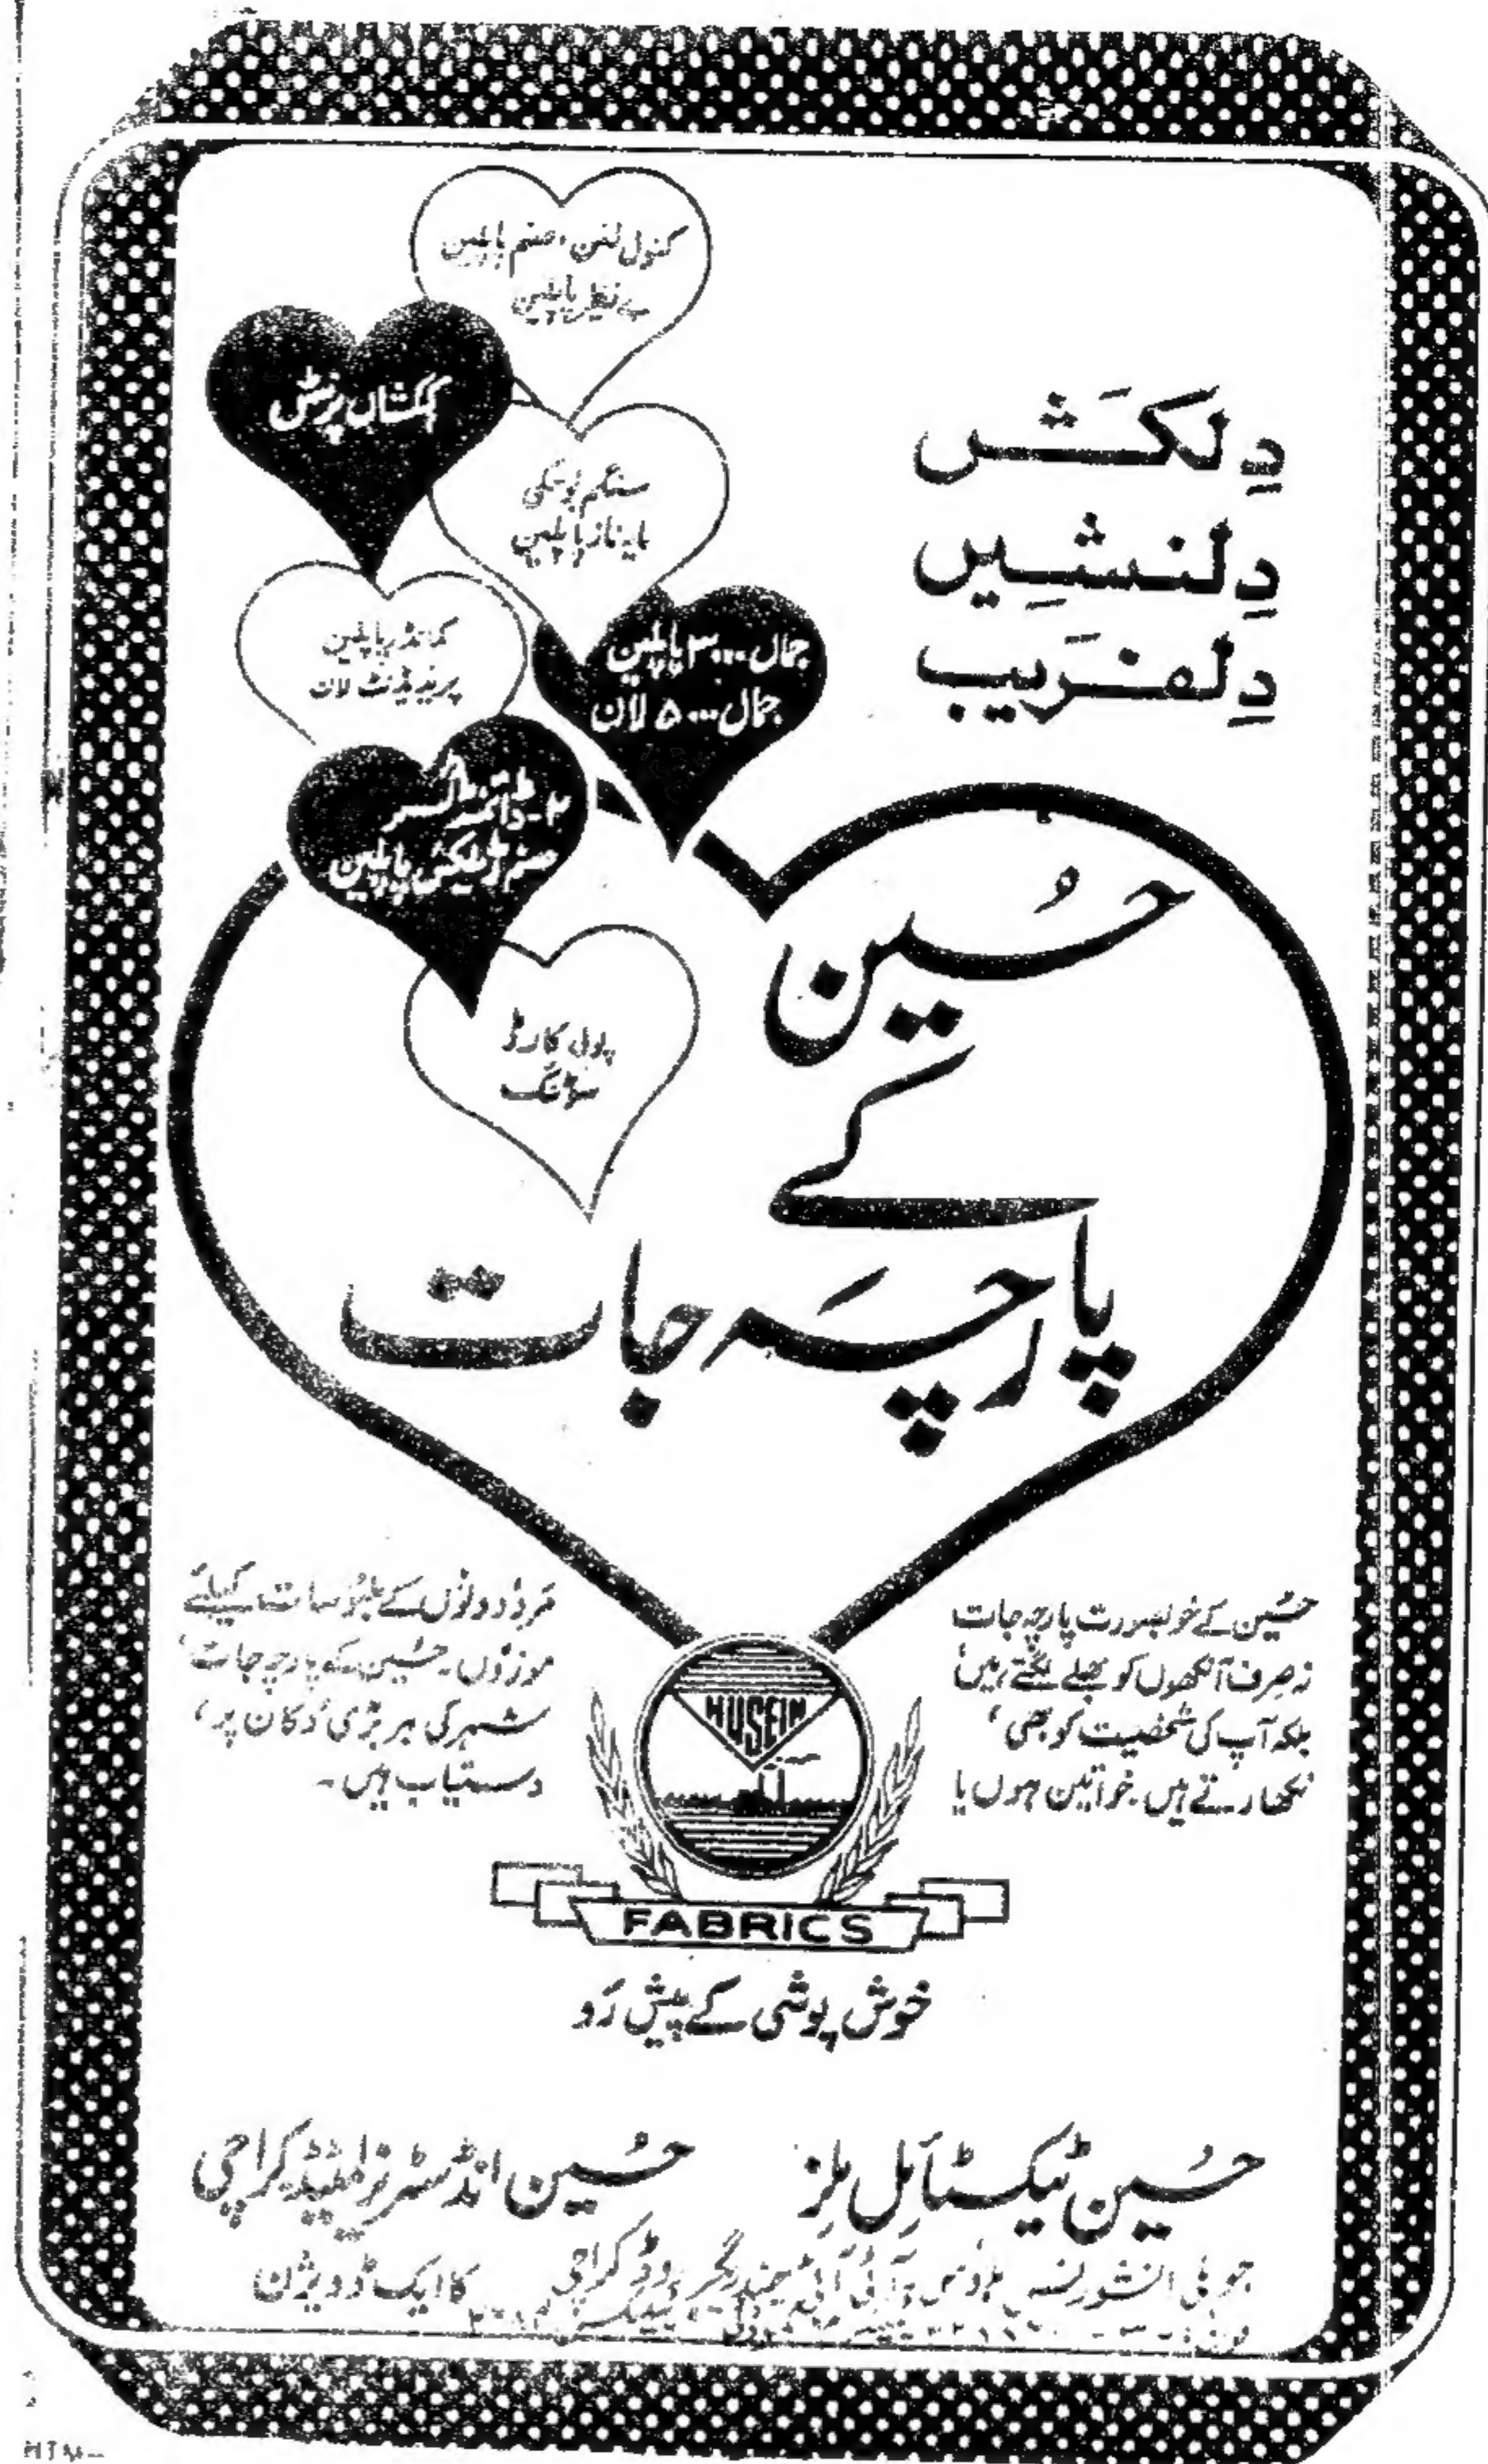 دِلکَش
دِلنشِیں
دِلفَریب
کنول لنن، صنم پاپلین
بے نظیر پاپلین
کہکشاں پرنٹس
سنگم بوسکی
مایہ ناز پاپلین
کمانڈر پاپلین
پریذیڈنٹ لان
جمال ۳۰۰۰ پاپلین
جمال ۵۰۰۰ لان
صنم ڈیلکس پاپلین
پولی کارڈ
سوٹنگ
حُسین
کے
پارچَہ جات
حُسین کے خوبصورت پارچہ جات
نہ صرف آنکھوں کو بھلے لگتے ہیں
بلکہ آپ کی شخصیت کو بھی
نکھارتے ہیں۔ خواتین ہوں یا
مَرد، دونوں کے ملبُوسات کیلئے
موزوں۔ حُسین کے پارچہ جات
شہر کی ہر بڑی دُکان پر
دستیاب ہیں۔
HUSEIN
FABRICS
خوش پوشی کے پیش رَو
حُسین ٹیکسٹائل مِلز
حُسین انڈسٹریز لمیٹیڈ کراچی
کا ایک ڈویژن
جوبلی انشورنس ہاؤس، آئی آئی چندریگر روڈ، کراچی
HTM-